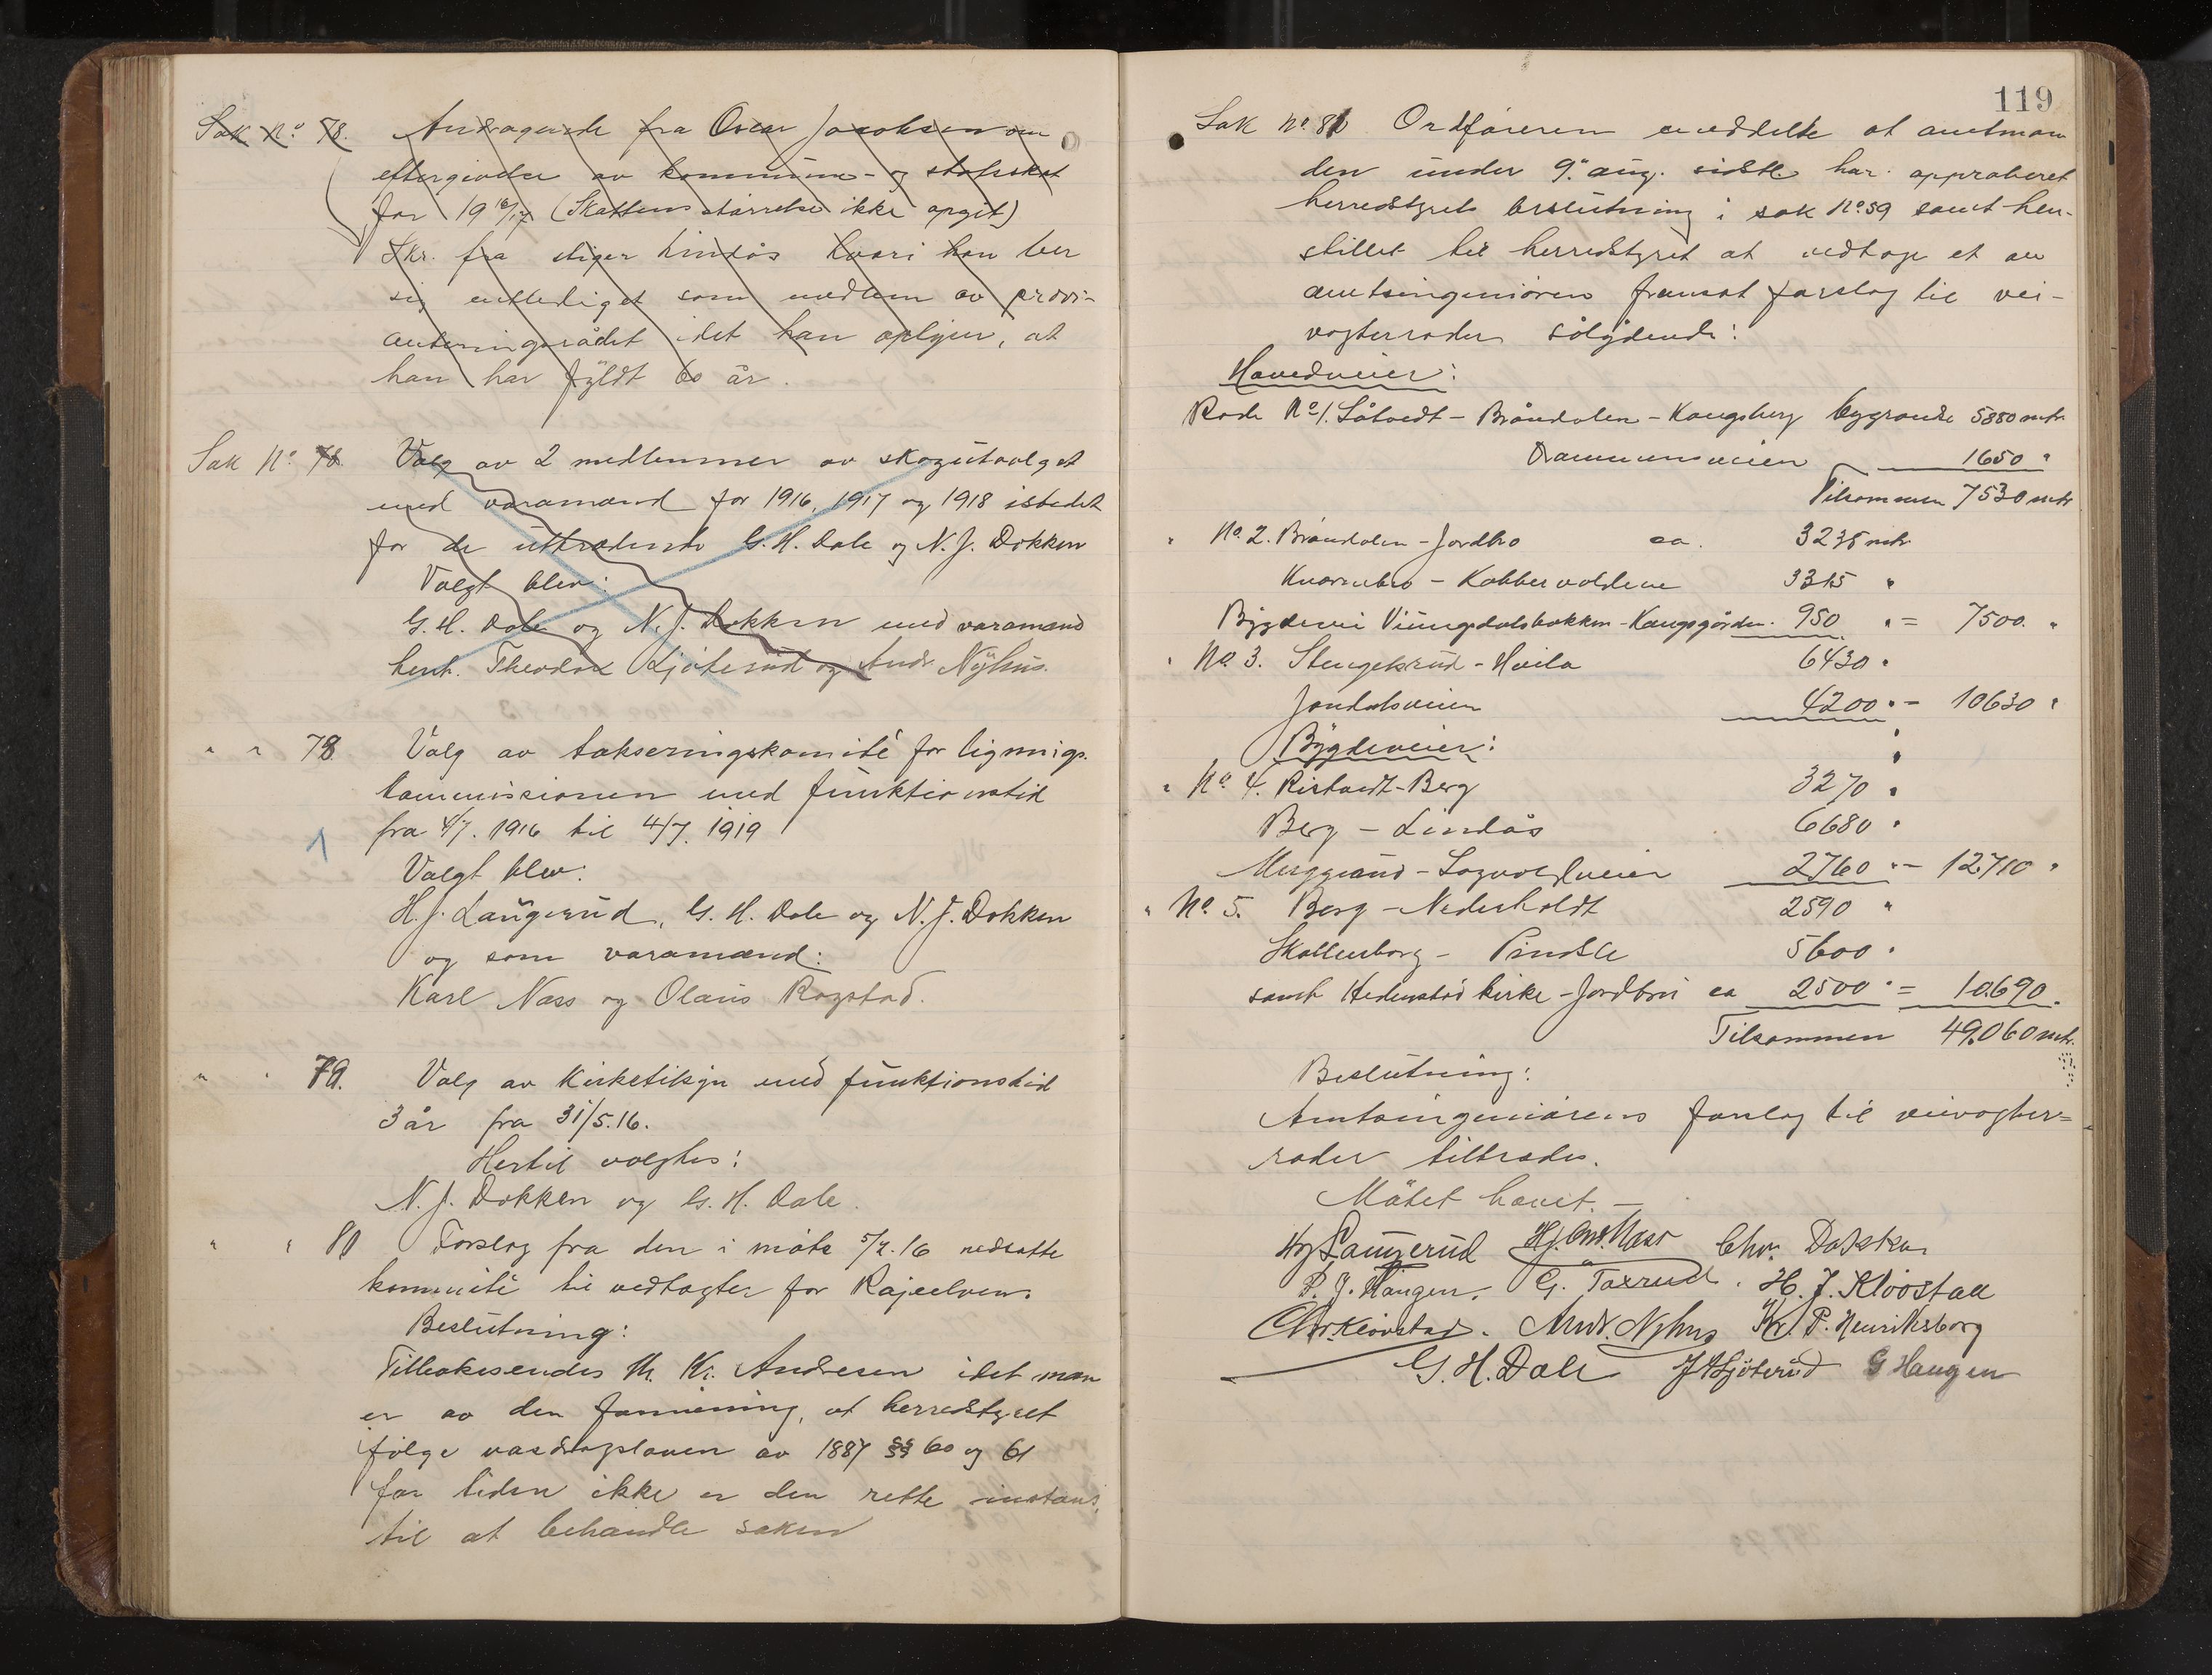 Sak No 78. Andragende fra Oscar Jacobsen om
eftergivelse av kommune- og statsskat
for 1916/17 (Skattens størrelse ikke opgit)
Skr. fra stiger Lindås hvori han ber
sig entlediget som medlem av provi-
anteringsrådet idet han oplyser, at
han har fyldt 60 år.
Sak No 78. Valg av 2 medlemmer av skogutvalget
med varamænd for 1916, 1917 og 1918 istedet
for de uttrædende G. H. Dale og N. J. Dokken
Valgt blev:
G. H. Dale og N. J. Dokken med varamænd
henh. Theodor Ljøterud og Andr. Nyhus.
" " 78 Valg av takseringskomité for lignings-
kommissionen med funktionstid
fra 4/7. 1916 til 4/7. 1919
Valgt blev:
H. J. Langerud, G. H. Dale og N. J. Dokken
og som varamænd:
Karl Næss og Olaus Rogstad.
" " 79. Valg av Kirketilsyn med funktionstid
3 år fra 31/5.16.
Hertil valgtes:
N. J. Dokken og G. H. Dale.
" " 80 Forslag fra den i møte 5/2.16 nedsatte
kommité til vedtægter for
Beslutning:
Tilbakesendes Kr. Andresen idet man
er av den formening, at herredstyret
ifølge vasdragsloven av 1887 §§ 60 og 61
for tiden ikke er den rette instans
til at behandle saken
119
Sak No 81 Ordføreren meddelte at amtman
den under 9. aug. sidstl. har approberet
herredstyrets beslutning i sak No 59 samt hen-
stillet til herredstyret at vedtage et av
amtsingeniøren fremsat forslag til vei-
vogterroder sålydende:
Hovedveier:
Rode No 1. Såtvedt - Bråndalen - Kongsberg bygrænse 5880 mtr.
Drammensveien 1650 "
Tilsammen 7530 mtr
" No. 2. Bråndalen - Jordbro ca. 3235 mtr.
Kværnbro - Kobbervoldene 3315 "
Bygdevei - Kongsgården. 950 " = 7500. "
" No. 3. Stengelsrud - Hvila 6430 "
Jondalsveien 4200 " - 10630 "
Bygdeveier:
" No. 4. Ristvedt - Berg 3270 "
Berg - Lindås 6680 "
Muggrud - 2760 " - 12710 "
" No. 5. Berg - Nederholdt 2590 "
Skollenborg - Pindsle 5600 "
samt Hedenstad kirke - Jordbru ca 2500 " = 10.690.
Tilsammen 49.060 mtr.
Beslutning:
Amtsingeniørens forslag til veivogter=
roder tiltrædes.
Møtet hævet. -
Langerud Næss Chr. Dokken
P. J. Haugen. G. Taxrud. H. J. Kløvstad
Chr. Kløvstad. Andr. Nyhus Kr. P. Henriksborg
G. H. Dale J. Ljøterud G Haugen